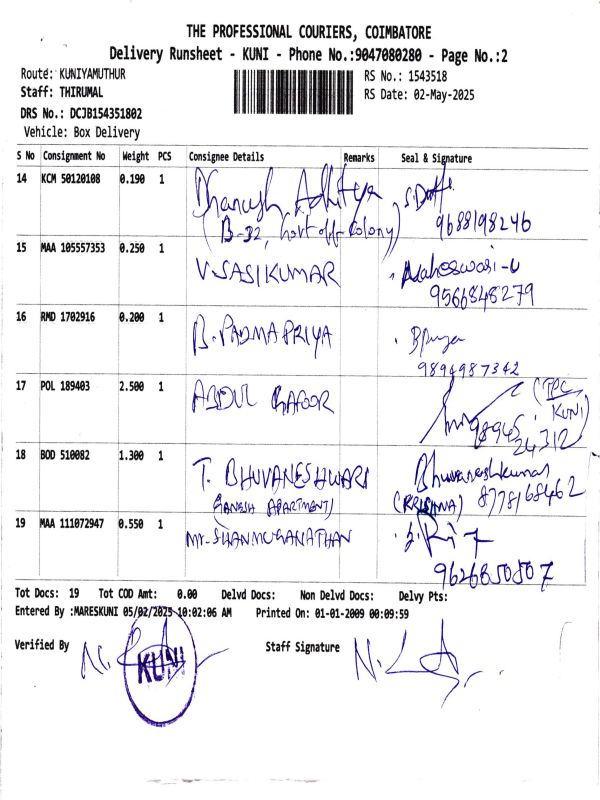 THE PROFESSIONAL COURIERS, COIMBATORE
Delivery Runsheet - KUNI - Phone No.:9047080280 - Page No.:2
Route: KUNIYAMUTHUR RS No.: 1543518
Staff: THIRUMAL RS Date: 02-May-2025
DRS No.: DCJB154351802
Vehicle: Box Delivery
S No Consignment No Weight PCS Consignee Details Remarks Seal & Signature
14 KCM 50120108 0.190 1 Dhanush Adhitya
(B-32, Govt off Colony) 9688198246
15 MAA 105557353 0.250 1 V.SASIKUMAR Maheswari-V
9566848279
16 RMD 1702916 0.200 1 B. PADMA PRIYA B Priya
9894987342
17 POL 189403 2.500 1 ABDUL GAFOOR (TPC
KUNI)
98945
24312
18 BOD 510082 1.300 1 T. BHUVANESHWARI Bhuvaneshkumar
GANESH APARTMENT) (KRISHNA) 8778168462
19 MAA 111072947 0.550 1 Mr. SHANMUGANATHAN
9626850507
Tot Docs: 19 Tot COD Amt: 0.00 Delvd Docs: Non Delvd Docs: Delvy Pts:
Entered By :MARESKUNI 05/02/2025 10:02:06 AM Printed On: 01-01-2009 00:09:59
Verified By KUNI Staff Signature